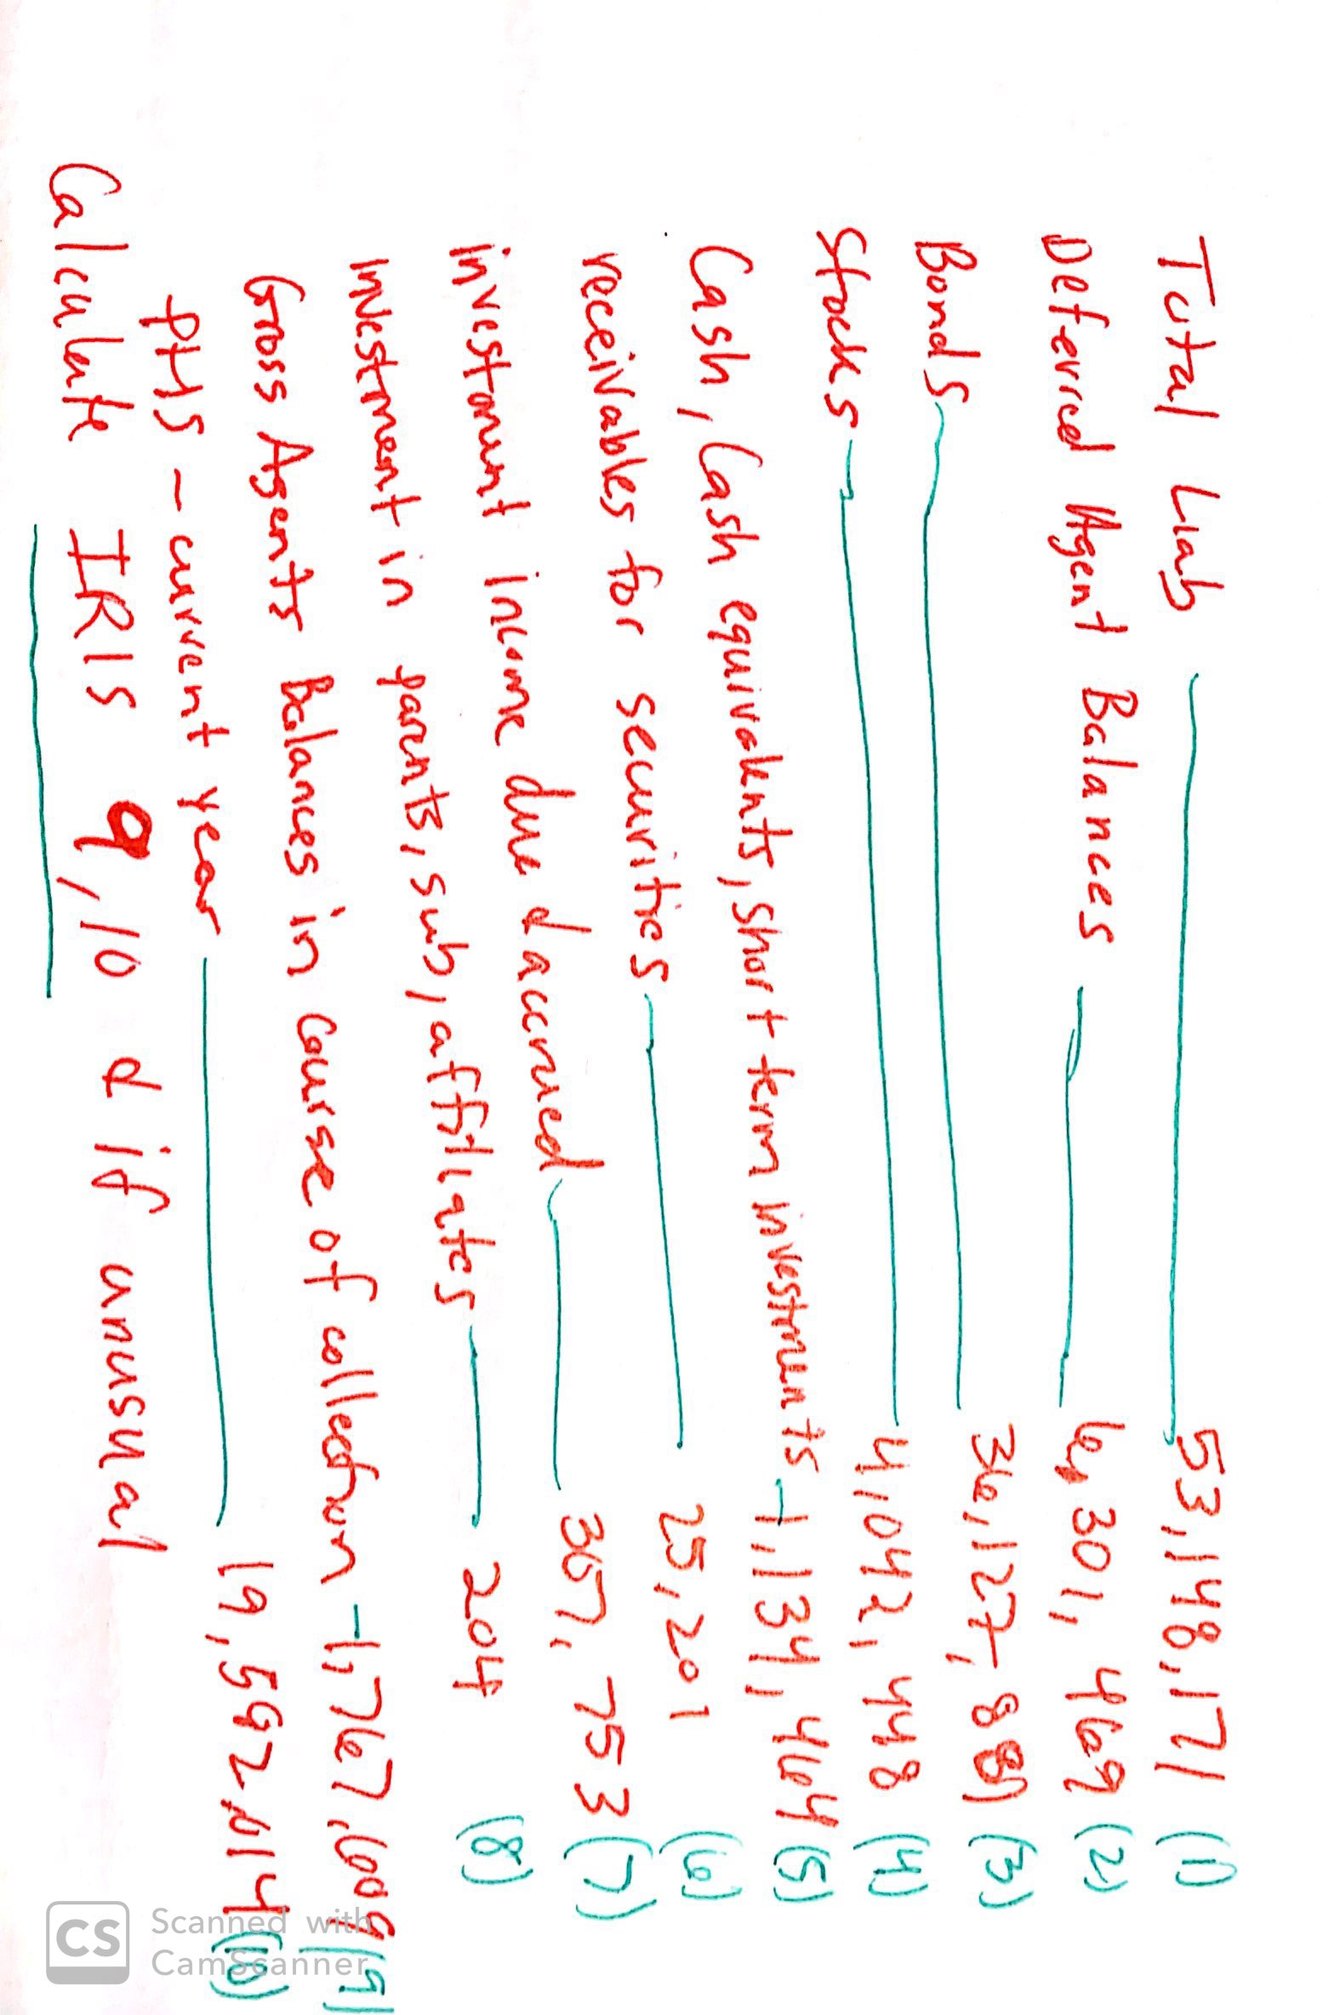 Total Liab 53,148,171 (1)
Deferred Agent Balances 6,301,469 (2)
Bonds 36,127,889 (3)
Stocks 4,042,448 (4)
Cash, Cash equivalents, short term investments -1,134,464 (5)
receivables for securities 25,201 (6)
investment income due & accrued 367,753 (7)
investment in parents, sub, affiliates 204 (8)
Gross Agents Balances in Course of collection -1,767,609 (9)
PHS - current year 19,592,014 (10)
Calculate IRIS 9,10 & if unusual
CS Scanned with
CamScanner